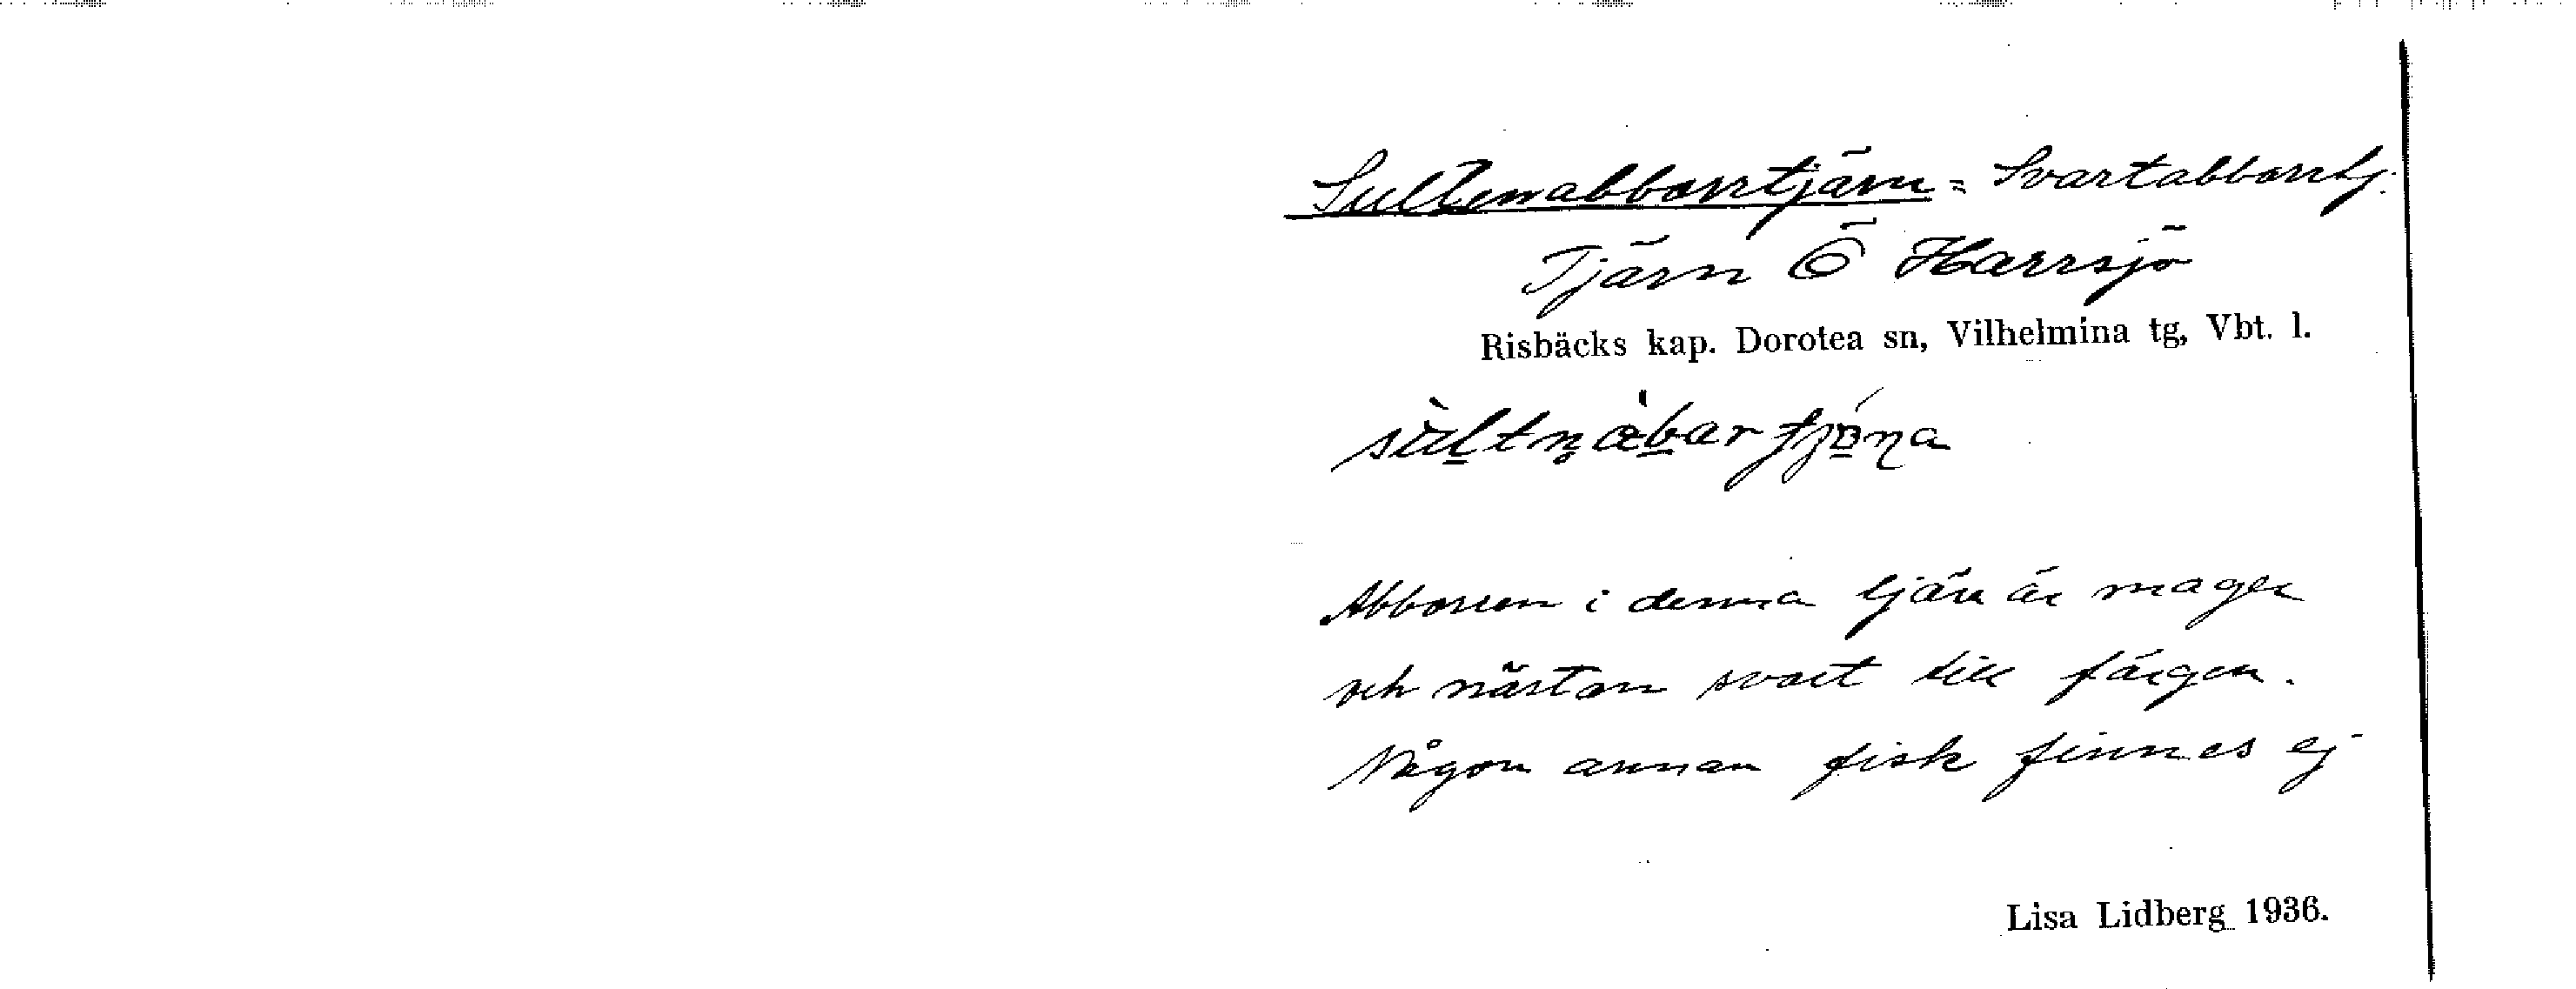 Sultenabborrtjärn = Svartabborrtj.
Tjärn Ö Harrsjö
Risbäcks kap. Dorotea sn, Vilhelmina tg, Vbt. l.
Abborren i denna tjärn är mager
och nästan svart till färgen.
Någon annan fisk finnes ej
Lisa Lidberg 1936.